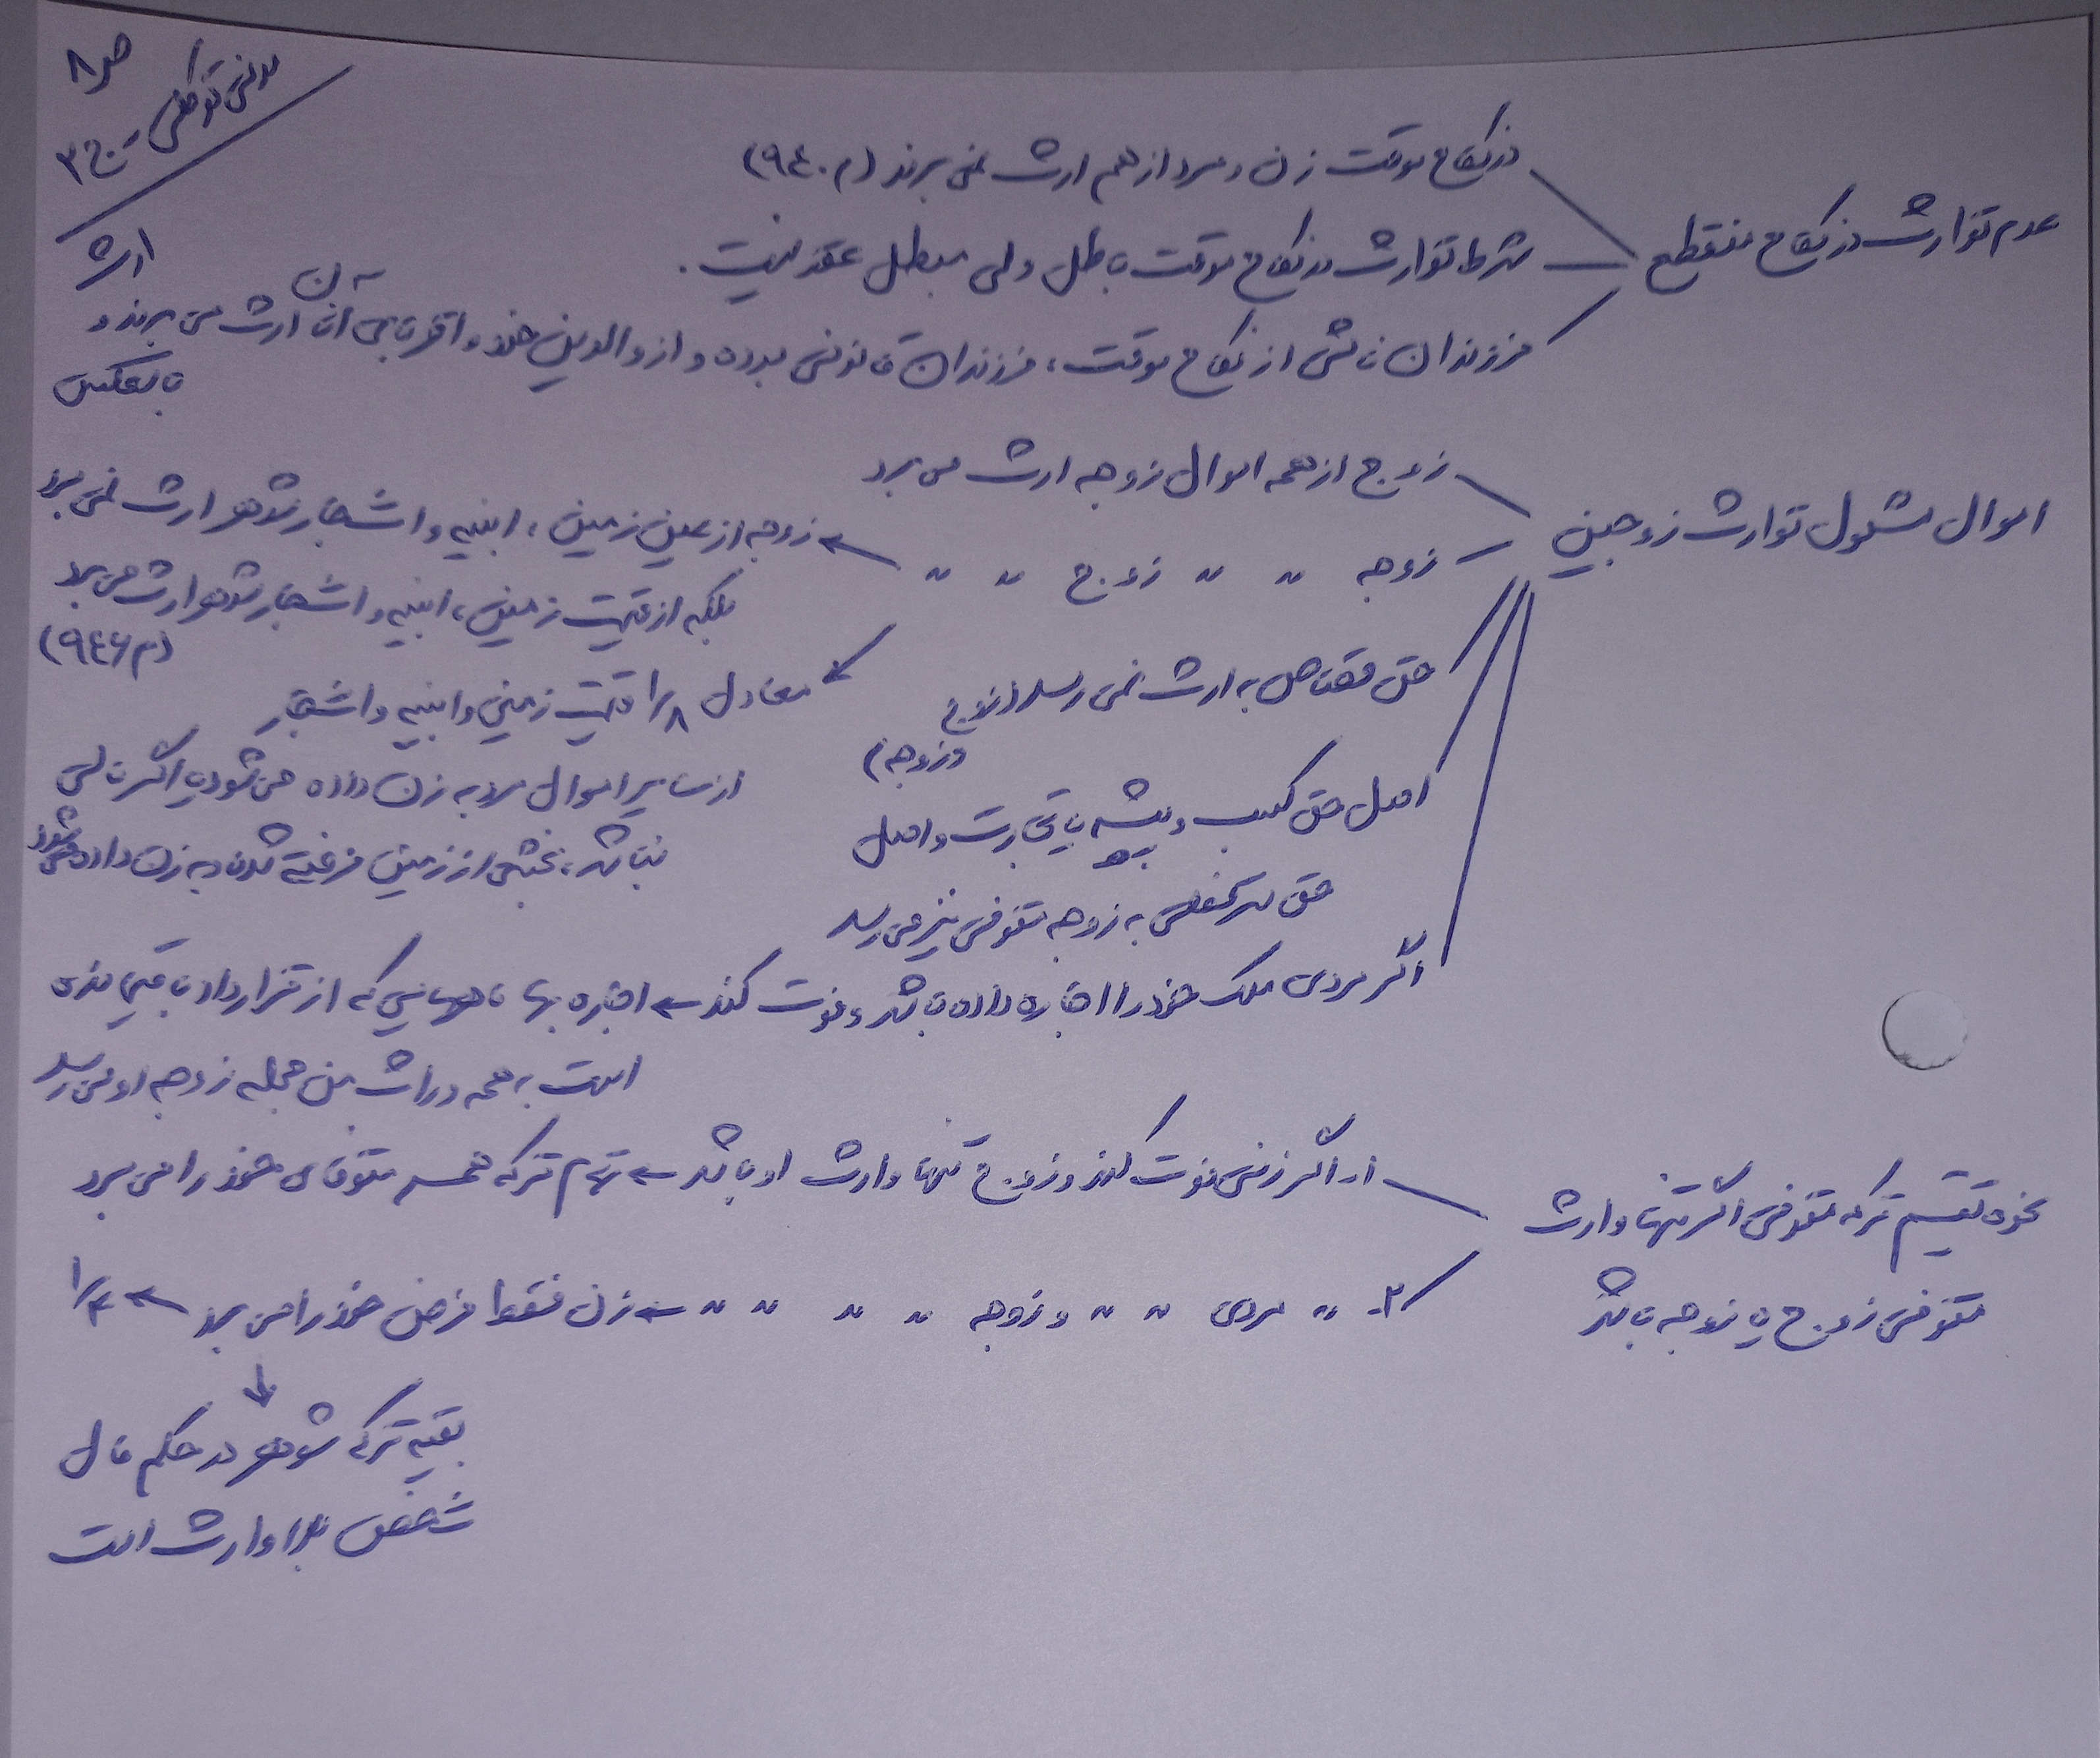 ص ۸
مدنی توکلی - ج ۳
ارث
عدم توارث در نکاح منقطع
در نکاح موقت زن و مرد از هم ارث نمی برند (م ۹۴۰)
شرط توارث در نکاح موقت باطل ولی مبطل عقد نیست.
فرزندان ناشی از نکاح موقت، فرزندان قانونی بوده و از والدین خود و اقربای آنان ارث می برند و
بالعکس
اموال مشمول توارث زوجین
زوج از همه اموال زوجه ارث می برد
زوجه " " زوج " " ← زوجه از عین زمین، ابنیه و اشجار شوهر ارث نمی برد
بلکه از قیمت زمین، ابنیه و اشجار شوهر ارث می برد
(م ۹۴۶)
معادل ۱/۸ قیمت زمین و ابنیه و اشجار
از سایر اموال مرد به زن داده می شود و اگر مالی
نباشد، بخشی از زمین فروخته شده به زن داده می شود
حق قصاص به ارث نمی رسد (زوج
و زوجه)
اصل حق کسب و پیشه یا تجارت و اصل
حق سرقفلی به زوجه متوفی نیز می رسد
اگر مردی ملک خود را اجاره داده باشد و فوت کند ← اجاره بها ماههایی که از قرارداد باقی مانده
است به همه وراث من جمله زوجه او می رسد
نحوه تقسیم ترکه متوفی اگر تنها وارث
متوفی زوج یا زوجه باشد
۱- اگر زنی فوت کند و زوج تنها وارث او باشد ← تمام ترکه همسر متوفای خود را می برد
۲- " مردی " " و زوجه " " " " ← زن فقط فرض خود را می برد ← ۱/۴
بقیه ترکه شوهر در حکم مال
شخص بلاوارث است